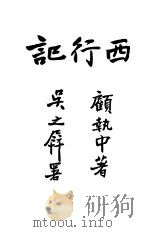 西行記
顧執中著
吳之屛署
研狗